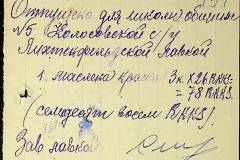 Отпущено для школы общины
№5 Колосовской с/у
Лихтенфельдской Лавкой
1. Маслена краска 3к. х 26 RKKS.
= 78 RKKS.
(семедесят восем RKKS)
Зав лавкой